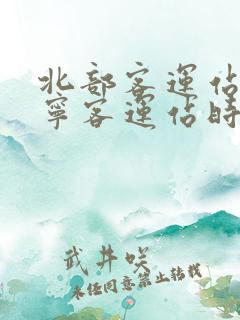 北部客運佔
寧客運佔時
武井咲
未经同意禁止转载